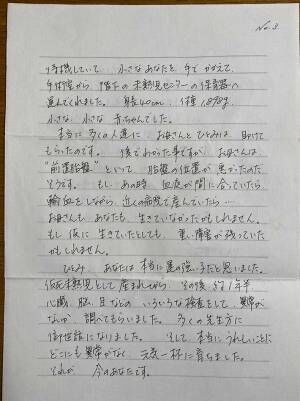 No.3.
待機していて、小さなあなたを、手で かかえて、
手術室から 階下の未熟児センターの保育器へ
運んでくれました。身長40cm、体重1,898g、
小さな 小さな 赤ちゃんでした。
本当に多くの人達に お母さんとひとみは 助けて
もらったのです。後でわかった事ですが、お母さんは、
"前置胎盤"といって、胎盤の位置が悪かったの
だそうです。もし、あの時 血液が間に合っていたら
輸血をしながら、近くの病院で産んでいたら…
お母さんも、あなたも、生きていなかったかもしれません。
もし仮に 生きていたとしても、重い障害が残っていた
かもしれません。
ひとみ、あなたは本当に運の強い子だと思いました。
未熟児として産まれながら、その後 約1年半、
心臓、脳、目などの いろいろな検査をして、異常が
ないか、調べてもらいました。多くの先生方に
御世話になりました。そして、本当にうれしいことに
どこにも異常がなく、元気一杯に育ちました。
それが 今のあなたです。